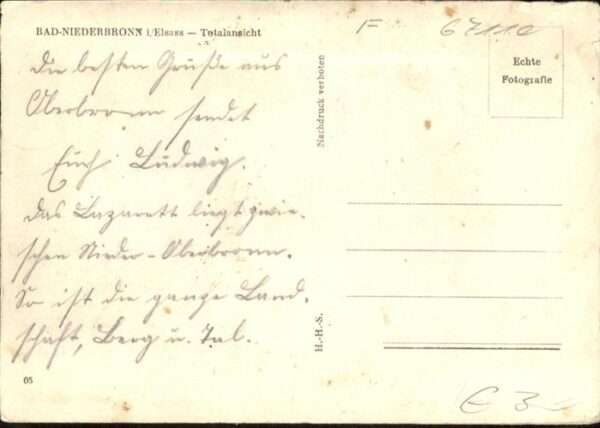 BAD-NIEDERBRONN i/Elsass — Totalansicht
F 67110
Echte
Fotografie
Nachdruck verboten
die besten Grüße aus
Oberbronn sendet
Euch Ludwig.
das Lazarett liegt zwi-
schen Nieder-Oberbronn.
So ist die ganze Land-
schaft, Berg u. Tal.
H.-H.-S.
05
€ 3